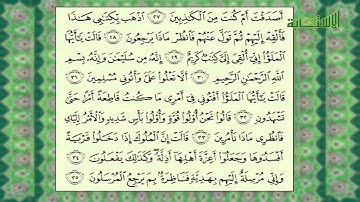 أَصَدَقْتَ أَمْ كُنتَ مِنَ ٱلْكَٰذِبِينَ ٢٧ ٱذْهَب بِّكِتَٰبِى هَٰذَا
فَأَلْقِهْ إِلَيْهِمْ ثُمَّ تَوَلَّ عَنْهُمْ فَٱنظُرْ مَاذَا يَرْجِعُونَ ٢٨ قَالَتْ يَٰٓأَيُّهَا
ٱلْمَلَؤُا۟ إِنِّىٓ أُلْقِىَ إِلَىَّ كِتَٰبٌ كَرِيمٌ ٢٩ إِنَّهُۥ مِن سُلَيْمَٰنَ وَإِنَّهُۥ بِسْمِ
ٱللَّهِ ٱلرَّحْمَٰنِ ٱلرَّحِيمِ ٣٠ أَلَّا تَعْلُوا۟ عَلَىَّ وَأْتُونِى مُسْلِمِينَ ٣١
قَالَتْ يَٰٓأَيُّهَا ٱلْمَلَؤُا۟ أَفْتُونِى فِىٓ أَمْرِى مَا كُنتُ قَاطِعَةً أَمْرًا حَتَّىٰ
تَشْهَدُونِ ٣٢ قَالُوا۟ نَحْنُ أُو۟لُوا۟ قُوَّةٍ وَأُو۟لُوا۟ بَأْسٍ شَدِيدٍ وَٱلْأَمْرُ إِلَيْكِ
فَٱنظُرِى مَاذَا تَأْمُرِينَ ٣٣ قَالَتْ إِنَّ ٱلْمُلُوكَ إِذَا دَخَلُوا۟ قَرْيَةً
أَفْسَدُوهَا وَجَعَلُوٓا۟ أَعِزَّةَ أَهْلِهَآ أَذِلَّةً وَكَذَٰلِكَ يَفْعَلُونَ ٣٤
وَإِنِّى مُرْسِلَةٌ إِلَيْهِم بِهَدِيَّةٍ فَنَاظِرَةٌۢ بِمَ يَرْجِعُ ٱلْمُرْسَلُونَ ٣٥